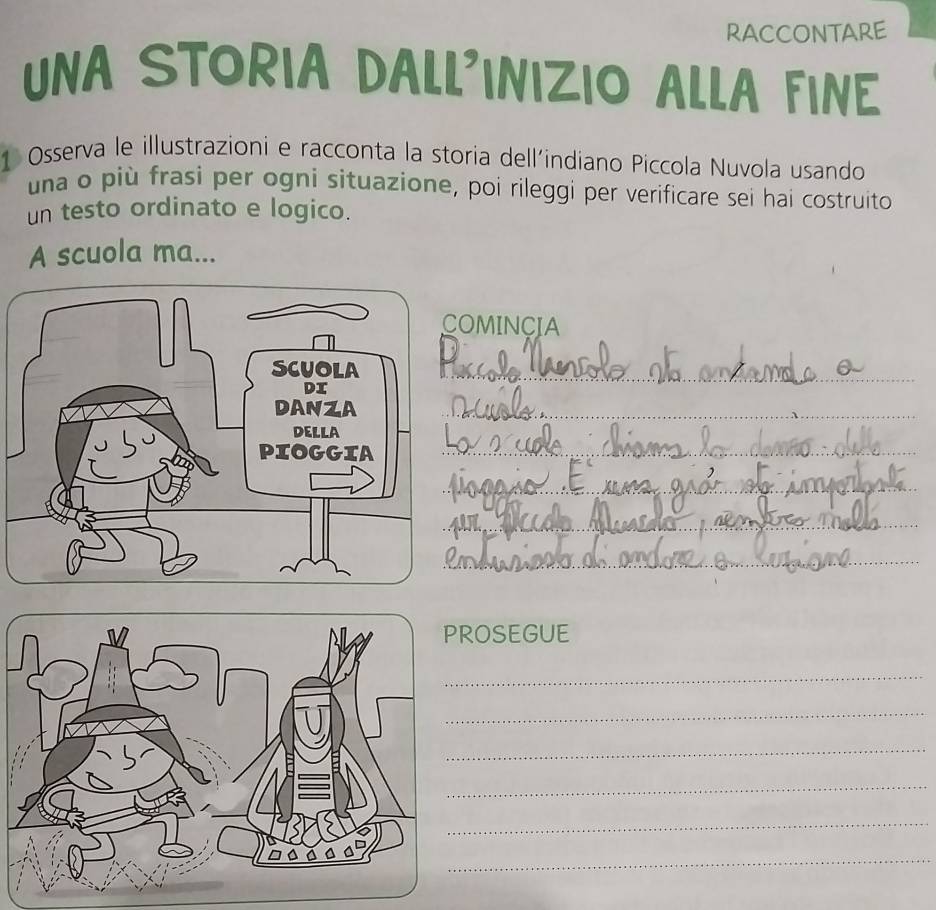 RACCONTARE
UNA STORIA DALL'INIZIO ALLA FINE
1 Osserva le illustrazioni e racconta la storia dell'indiano Piccola Nuvola usando
una o più frasi per ogni situazione, poi rileggi per verificare sei hai costruito
un testo ordinato e logico.
A scuola ma...
SCUOLA
DI
DANZA
DELLA
PIOGGIA
COMINCIA
Piccola Nuvola sta andando a
scuola.
La scuola si chiama la danza della
pioggia. E' una
per Piccola Nuvola, sembra molto
entusiasta di andare a lezione
PROSEGUE